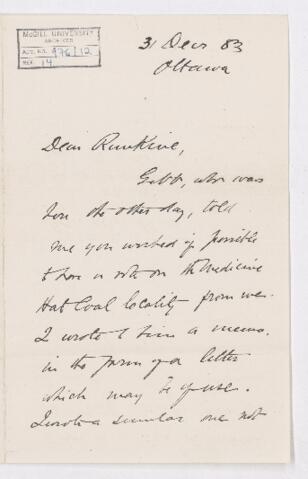 McGILL UNIVERSITY
ARCHIVES
ACC. NO. 976/12
REF. 14
31 Dec 83
Ottawa
Dear Rankine,
Gibb, who was
here the other day, told
me you wished if possible
to have a note on the Medicine
Hat Coal locality from me.
I wrote to him a memo.
in the form of a letter
which may be of use.
I wrote a similar one not